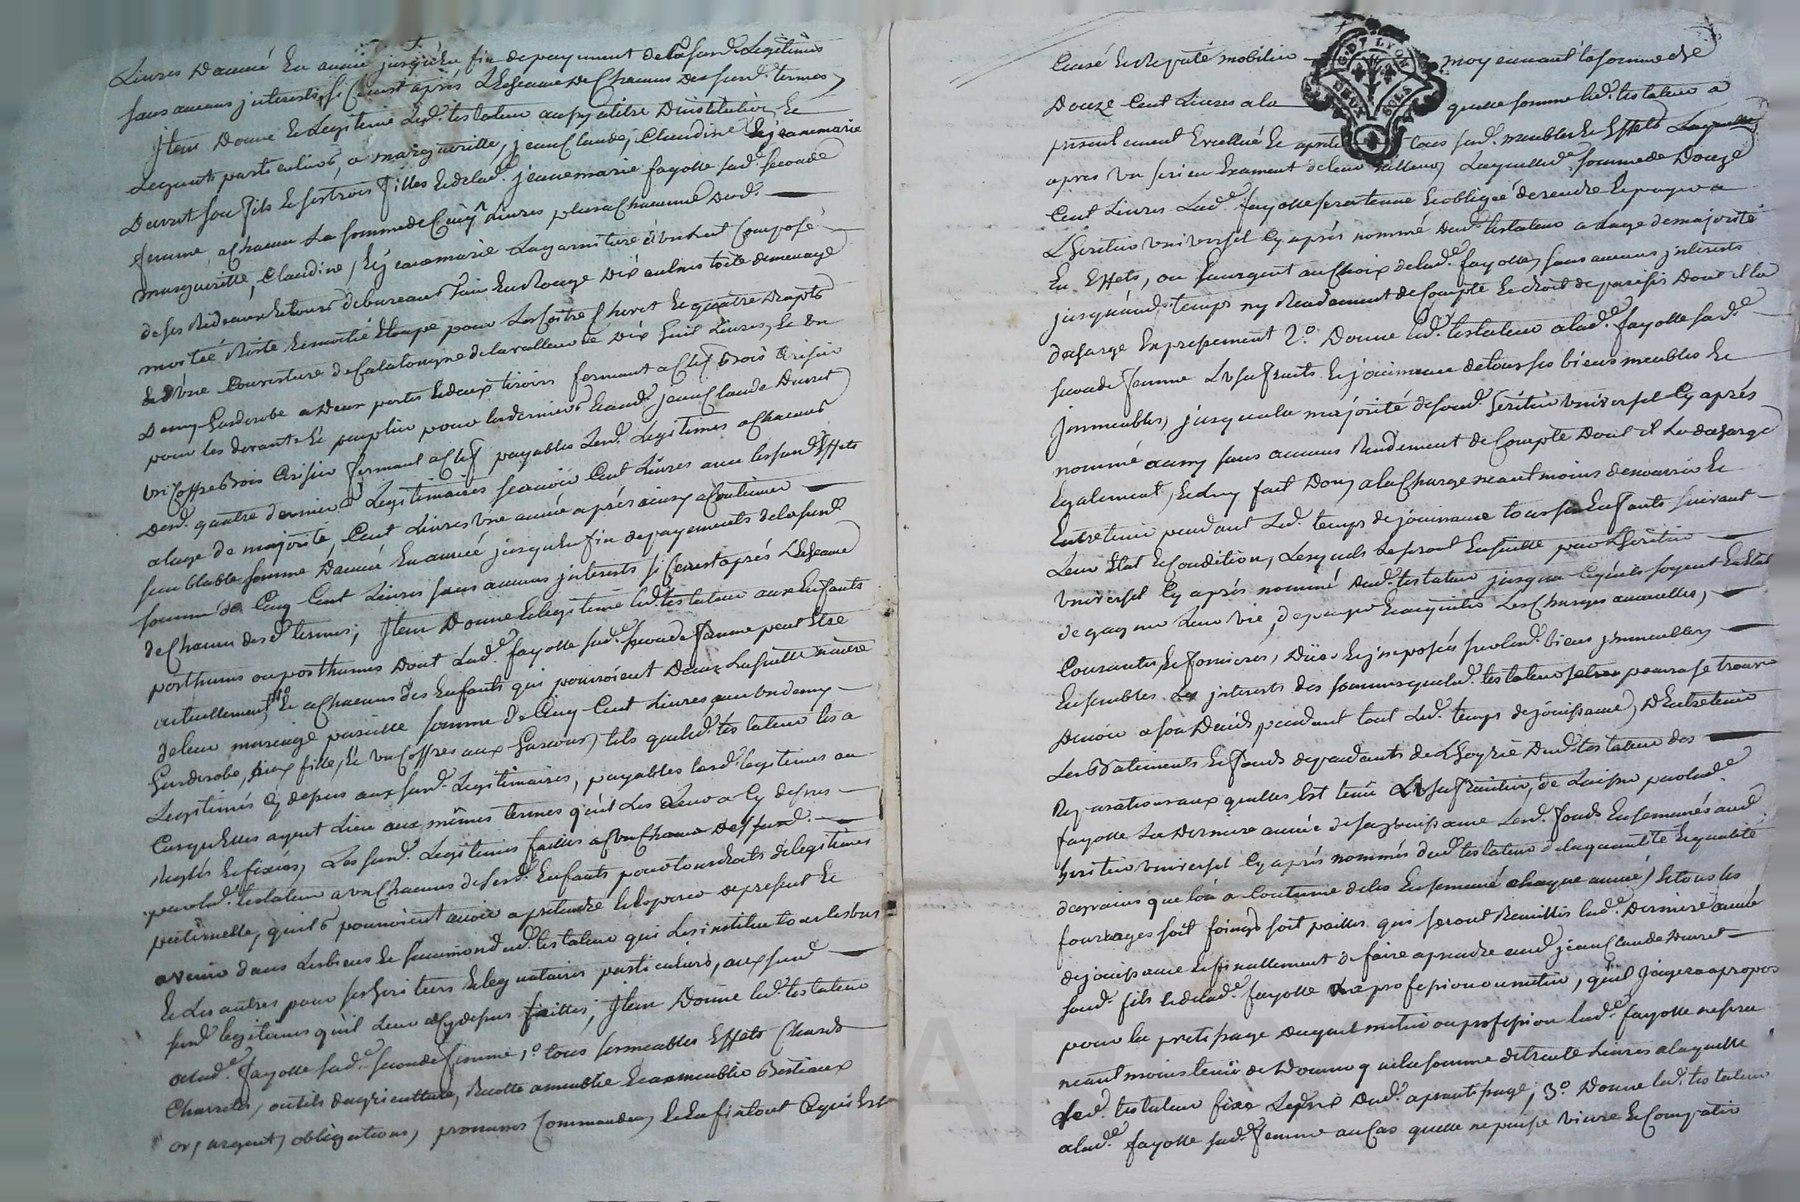 Livres Dannée En année jusqu'en fin depayement delasusd. Legitimes
sans aucuns jnterests, si Cenest après L'Echeance De Chacuns Desusd. termes,
Jtem Donne Et Legitime Led. testateur aussy atitre D'institution Et
Legats particuliers, a margueritte, jeanClaude, Claudine Et jeanemarie
Durret son fils Et sestrois filles Et delad.e jeanemarie fayolle sad.e seconde
femme, a Chacun La somme de Cinq Livres plus a Chacune Desd.
margueritte, Claudine, Et jeanemarie Lagarniture d'un Lict Composé
de ses Rideaux Et tours debureaux Vin En Rouge Dix aulnes toile demenage
moitié Rite Et moitié Etoupe pour Les Coitre Chevet Et quatre Drapts
Et Vne Couverture deCatalongne delavalleur de Dix huit Livres, Et Vn
Demy Garderobe a Deux portes Et deux tiroirs fermant a Clef Bois Cerisier
pour les devants Et peuplier pour les derniers Et aud. jeanClaude Durret
Vn Coffre Bois Cerisier fermant a Clef payables Lesd. Legitimes a Chacuns
Desd. quatre derniers Legitimaires scavoir Cent Livres avec les susd. Effets
alage de majorité Cent Livres Vne année après ainsy a Continuer
semblable somme Dannée En année jusquEn fin depayements delasusd.
somme de Cinq Cent Livres sans aucuns jnterests si Cenest après L'Echeance
de Chacun desd. termes; Jtem Donne Et Legitime led. testateur aux Enfants
posthumes ou posthumes Dont Lad.e fayolle sad.e seconde femme peut Etre
actuellement Et a Chacuns des Enfants qui pourroient Dans La suitte naitre
de leur mariage pareille somme de Cinq Cent Livres avec Vn demy
Garderobe, aux filles, Et Vn Coffres aux Garcons, tels que led. testateur les a
Legitimés Cy dessus aux susd. Legitimaires, payables lesd. legitimes au
Cas quElles ayent Lieu aux mêmes termes qu'il Les Leur a Cy dessus
Reglés Et fixés, Les susd. Legitimes faittes a Vn Chacun Desusd.
par led. testateur a Vn Chacuns de sesd. Enfants pour tous droits de legitimes
paternelle, qu'ils pourroient avoir a pretendre Et Esperer de present Et
avenir dans Les biens Et hauxmond.ud. testateur qui Les institue tous les Uns
Et Les autres pour ses heritiers Et legataires particuliers, aux susd.
susd. legitimes qu'il Leur a Cy dessus faittes; Jtem Donne led. testateur
alad.e fayolle sad.e seconde femme 1.o tous ses meubles Effets Chards
Charrettes, outils d'agriculture, Recolte ameublie Et aameublir Bestiaux
or, argent, obligations, promesses Commandes, Et Enfin tout Ce qui Est
Censé Et Reputé mobilier moyennant lasomme de
Douze Cent Livres a la quelle somme led. testateur a
presentement Evalué Et aprétié tous sesd. meubles Et Effets Lesquelles
apres Vn serieu Exament deleur Valleurs, Laquelled.e somme de Douze
Cent Livres Lad.e fayolle sera tenue Et obligée de rendre Et payer a
L'heritier Vniversel Cy après nommé Dud. testateur a Lage de majorité
En Effets, ou En argent au Choix delad.e fayolle, sans aucuns jnterests
jusqu'aud. temps ny Rendement de Compte Et droit de parisis Dont il la
décharge Expressement 2.o Donne led. testateur alad.e fayolle sad.e
seconde femme L'usufruits Et joüissance de tous ses biens meubles Et
Jmmeubles, jusqu'a la majorité de sond. heritier Vniversel Cy après
nommé aussy sans aucuns Rendement de Compte Dont il La decharge
Egalement, Et luy fait Don, a la Charge neantmoins de nourrir Et
Entretenir pendant Led. temps de joüissance tous ses Enfants suivant
Leur Etat Et Condition, Lesquels Le seront Ensuitte par L'heritier
Vniversel Cy après nommé Dud. testateur jusqua Cequ'ils soyent En Etat
de gagner Leur vie, de payer Et acquitter Les Charges annuelles,
Courantes, Et foncieres, Düe Et jmposées sur lesd. biens jmmeubles
Ensembles Les jnterests des sommes que led. testateur pourra se trouver
Devoir a son Decés, pendant tout Led. temps de joüissance, D'Entretenir
Les Batiments Et fonds dependants de L'hoyrie Dud. testateur des
Reparations aux quelles Est tenu L'Vsufruitier, de Laisser par lad.e
fayolle La Derniere année de sa joüissance Lesd. fonds Ensemencés aud.
heritier Vniversel Cy après nommés dud. testateur de laquantité Et qualité
de grains que lon a Coutume de les Ensemencé chaque année, Et tous les
fourrages soit foings soit pailles qui seront Recüillis lad.e Derniere année
de joüissance Et finallement de faire aprendre aud. jean Claude Durret
sond. fils Et delad.e fayolle Vne profession ou metier, quil jugera apropos
pour la prentissage Duquel metier ou profession lad.e fayolle nesera
neantmoins tenüe de Donner que la somme de trente Livres a laquelle
Led. testateur fixe Le prix Dud. aprentissage; 3.o Donne led. testateur
alad.e fayolle sad.e femme au Cas quelle ne puisse vivre Et Compatir
G. DE LYON
DEUX SOLS